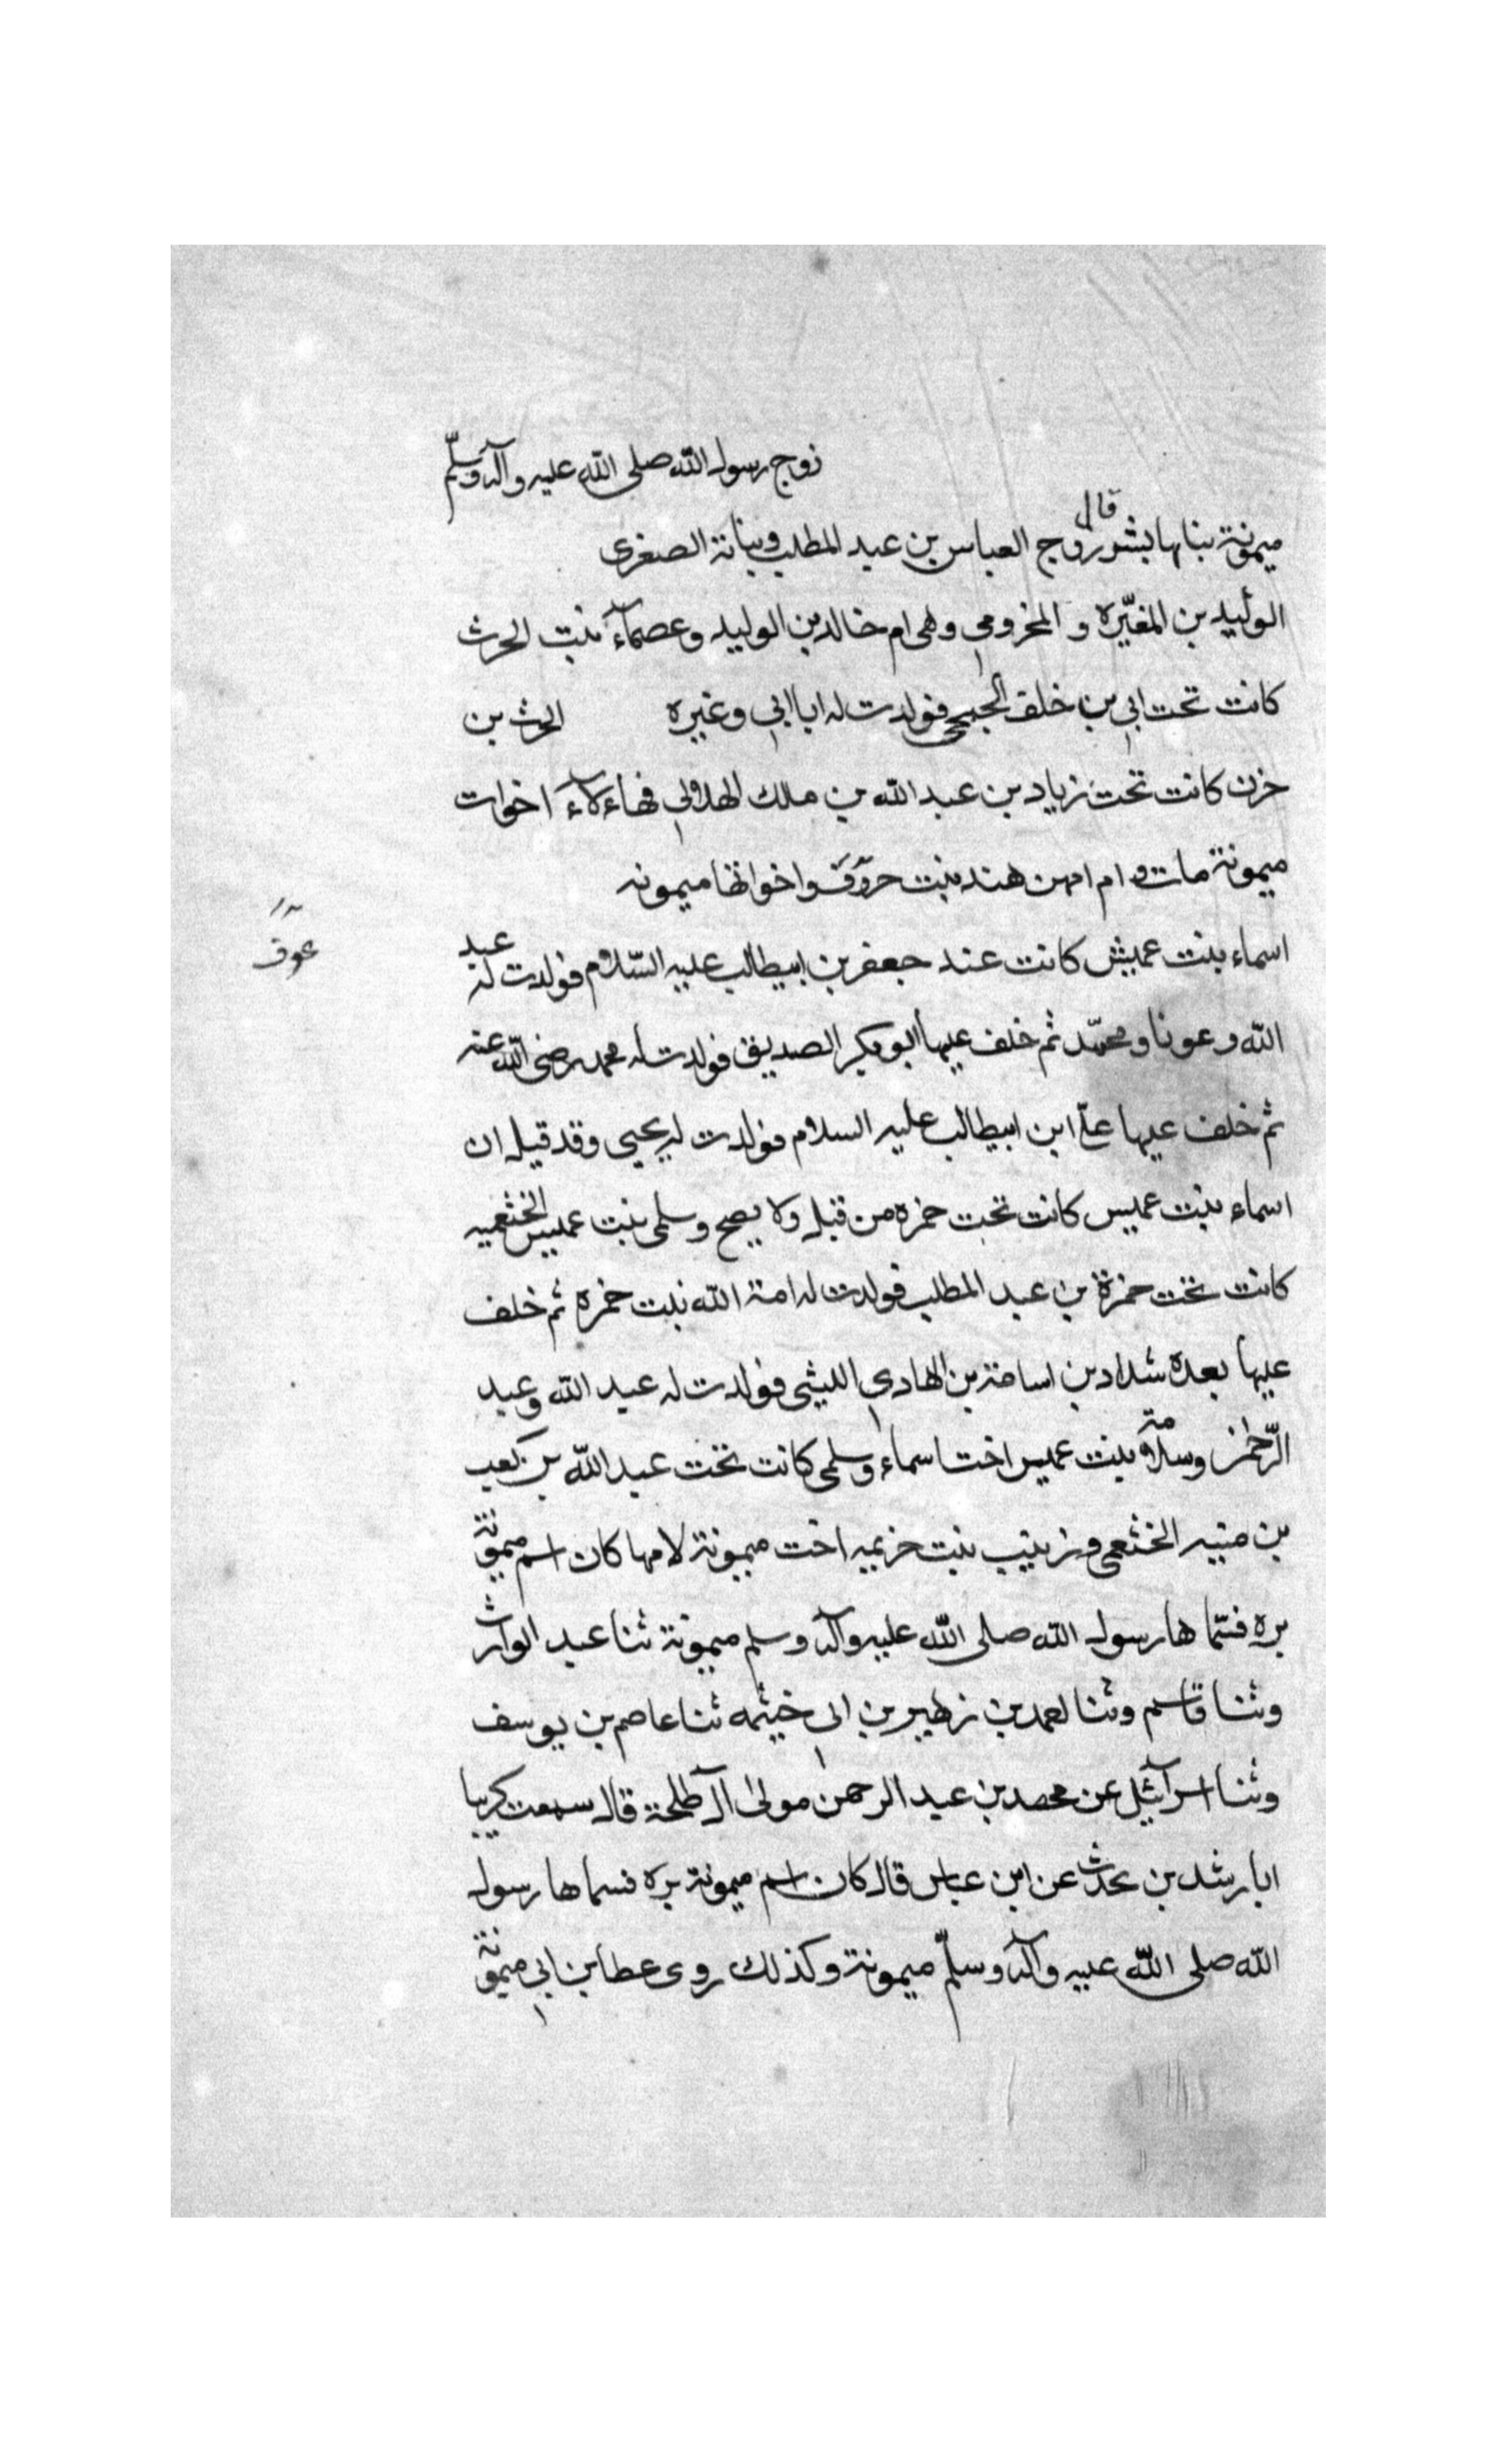 زوج رسول الله صلى الله عليه وآله وسلّم
قال
ميمونة بنابها بشر زوج العباس بن عبد المطلب وبنانة الصغرى
الوليد بن المغيّره و المخزومي وهى ام خالد بن الوليد وعصمآء بنت الحرث
كانت تحت ابي بن خلف الجمحى فولدت له ابا ابي وغيره الحرث بن
حزن كانت تحت زياد بن عبد الله بن ملك الهلالي فهاءلآء اخوات
ميمونة مات و ام امهن هند بنت عوف واخواتها ميمونه
عوف
اسماء بنت عميش كانت عند جعفر بن ابيطالب عليه السّلام فولدت له عبد
الله وعونا ومحمّد ثم خلف عيها ابو بكر الصديق فولدت له محمد رضى الله عنه
ثم خلف عيها علىّ ابن ابيطالب عليه السلام فولدت له يحيى وقد قيل ان
اسماء بنت عميس كانت تحت حمزه من قبل ولا يصح وسلمى بنت عميس الخثعميه
كانت تحت حمزة بن عبد المطلب فولدت له امة الله بنت حمزه ثم خلف
عيها بعده شداد بن اسامة بن الهادي الليثى فولدت له عبد الله وعبد
الرّحمن وسلامة بنت عميس اخت اسماء وسلمى كانت تحت عبد الله بن كعب
بن منبه الخثعمى وزينب بنت خزيمه اخت ميمونة لامها كان اسم ميمونة
بره فسّما ها رسول الله صلى الله عليه وآله وسلم ميمونة ثنا عبد الوارث
وثنا قاسم وثنا احمد بن زهير بن ابى خيثمه ثنا عاصم بن يوسف
وثنا اسرآئيل عن محمد بن عبد الرحمن مولى آل طلحة قال سمعت كريبا
ابا رشد بن يحدث عن ابن عباس قال كان اسم ميمونة بره فسما ها رسول
الله صلى الله عيه وآله وسلّم ميمونة وكذلك روى عطا بن ابي ميمونة